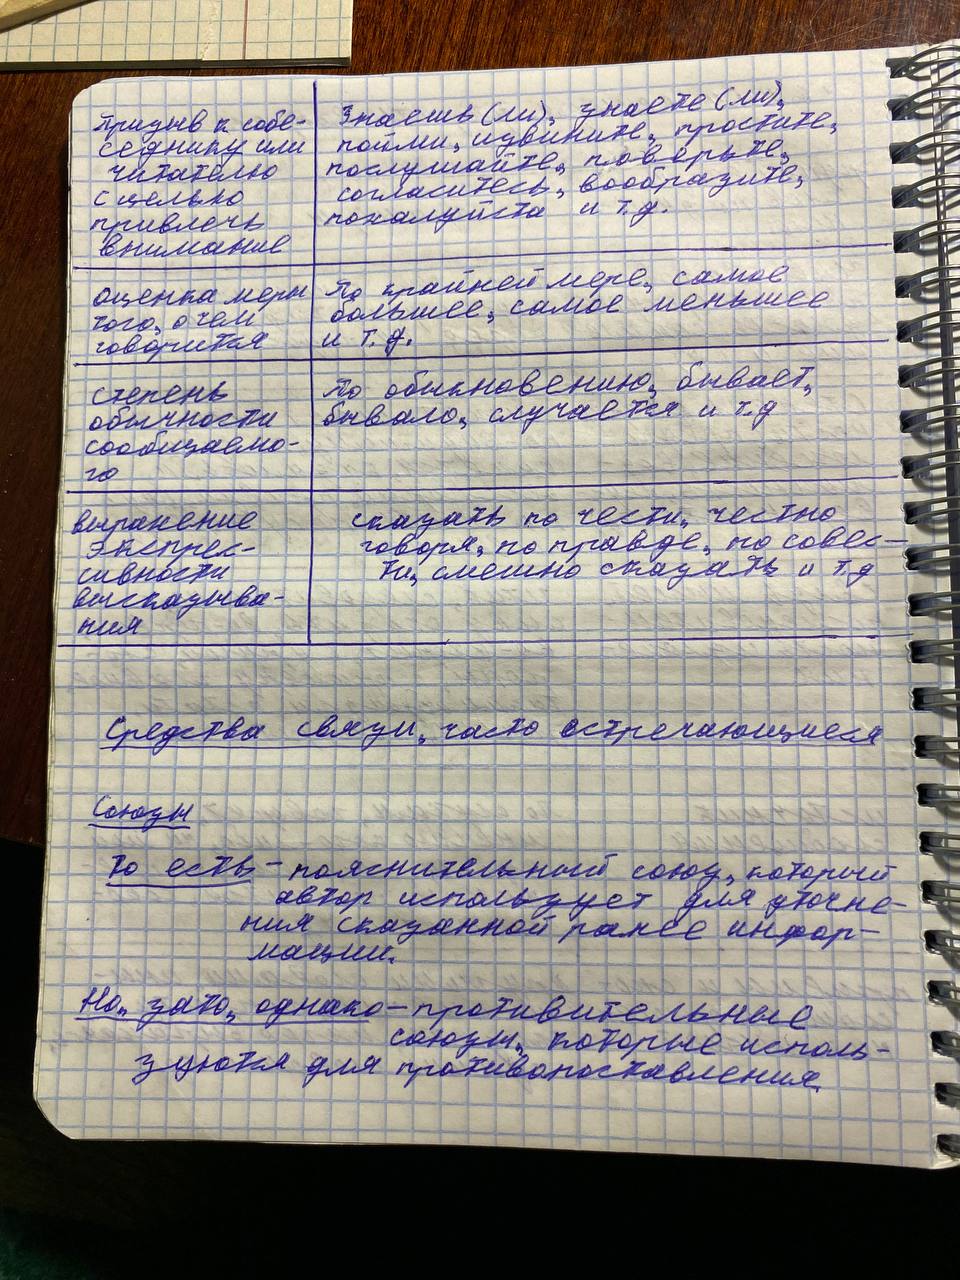 призыв к собе-
седнику или
читателю
с целью
привлечь
внимание
Знаешь (ли), знаете (ли),
пойми, извините, простите,
послушайте, поверьте,
согласитесь, вообразите,
пожалуйста и т.д.
оценка меры
того, о чём
говорится
По крайней мере, самое
большее, самое меньшее
и т.д.
степень
обычности
сообщаемо-
го
По обыкновению, бывает,
бывало, случается и т.д
выражение
экспрес-
сивности
высказыва-
ния
сказать по чести, честно
говоря, по правде, по совес-
ти, смешно сказать и т.д
Средства связи, часто встречающиеся
Союзы
То есть - пояснительный союз, который
автор использует для уточне-
ния сказанной ранее инфор-
мации.
Но, зато, однако - противительные
союзы, которые исполь-
зуются для противопоставления